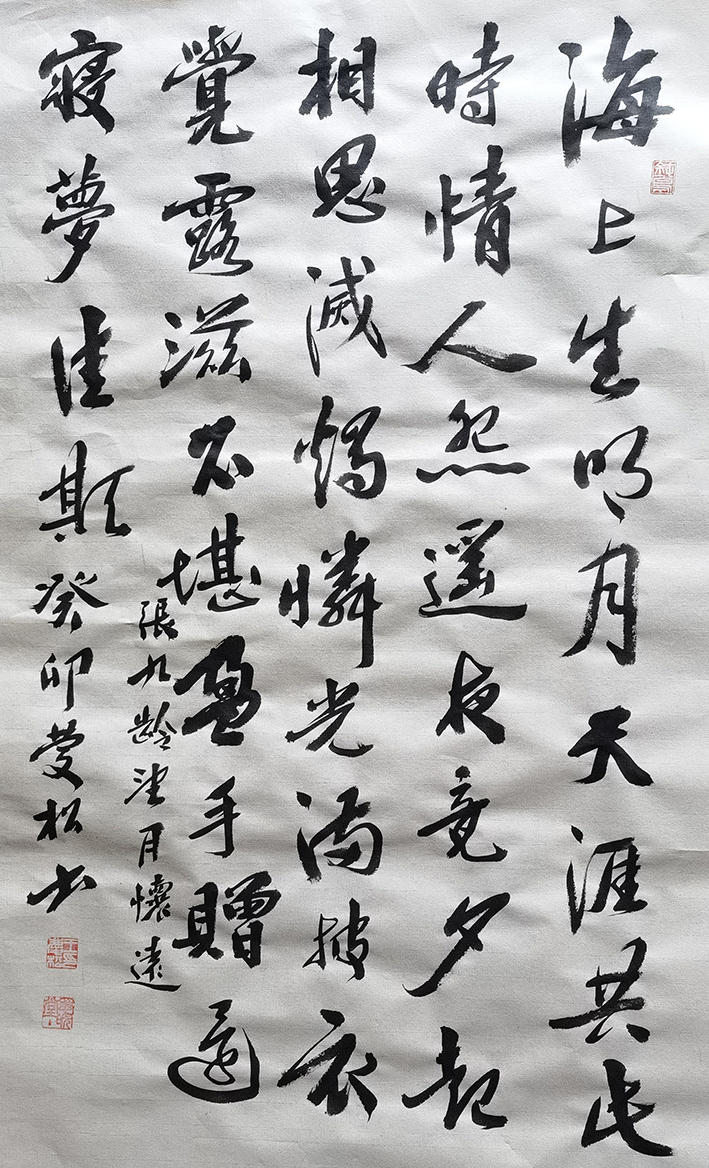 海上生明月天涯共此
時情人怨遥夜竟夕起
相思滅燭憐光滿披衣
覺露滋不堪盈手贈還
張九齡望月懷遠
寢夢佳期癸卯松书